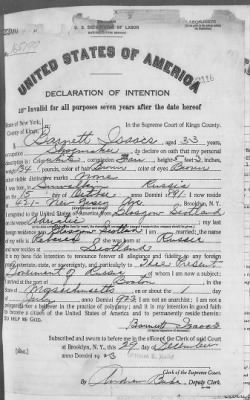 U. S. DEPARTMENT OF LABOR
UNITED STATES OF AMERICA
DECLARATION OF INTENTION
Invalid for all purposes seven years after the date hereof
State of New York,
County of Kings,
In the Supreme Court of Kings County.
I, Barnett Isaacs aged 33 years,
occupation do declare on oath that my personal
description is: Color white, complexion Fair, height 5 feet 3 inches,
weight 134 pounds, color of hair Brown, color of eyes Brown
other visible distinctive marks None
I was born in Suwalky Russia
on the day of anno Domini 1891. I now reside
at 621 New Jersey Ave., Brooklyn, N. Y.
I emigrated to the United States of America from Glasgow Scotland
on the vessel my last
foreign residence was Scotland; I am married, the name
of my wife is Rebecca; she was born at Russia
and now resides at Scotland
It is my bona fide intention to renounce forever all allegiance and fidelity to any foreign
prince, potentate, state, or sovereignty, and particularly to The Present
Government of Russia of whom I am now a subject;
I arrived at the port of Boston, in the
State of Massachusetts, on or about the 1 day
of July, anno Domini 1923; I am not an anarchist; I am not a
polygamist nor a believer in the practice of polygamy; and it is my intention in good faith
to become a citizen of the United States of America and to permanently reside therein:
SO HELP ME GOD.
Barnett Isaacs
Subscribed and sworn to before me in the office of the Clerk of said Court
at Brooklyn, N. Y., this 22 day of December
anno Domini 1923
Clerk of the Supreme Court.
By Deputy Clerk.